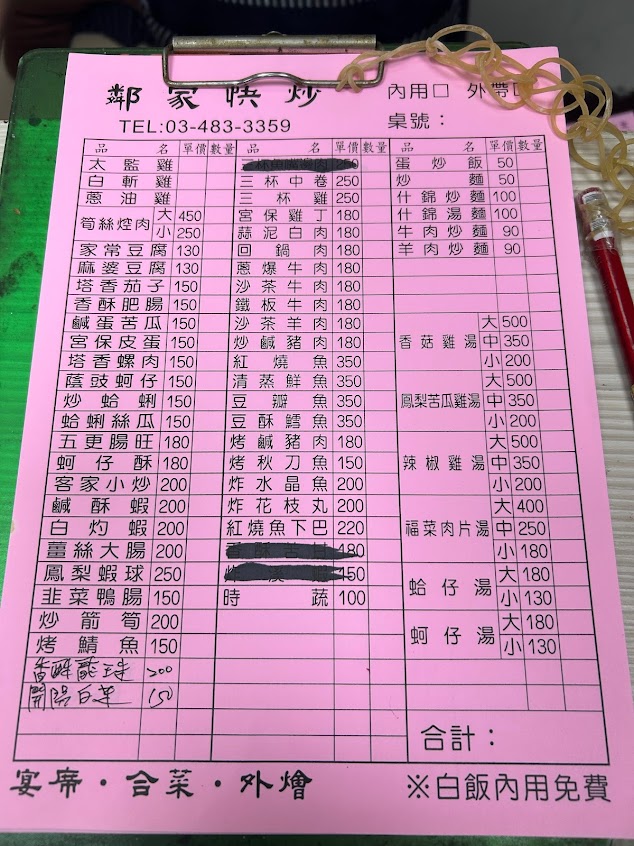 鄰家快炒
內用□ 外帶□
TEL:03-483-3359
桌號：
品名 單價 數量
太監雞
白斬雞
蔥油雞
筍絲焢肉 大 450
小 250
家常豆腐 130
麻婆豆腐 130
塔香茄子 150
香酥肥腸 150
鹹蛋苦瓜 150
宮保皮蛋 150
塔香螺肉 150
蔭豉蚵仔 150
炒蛤蜊 150
蛤蜊絲瓜 150
五更腸旺 180
蚵仔酥 180
客家小炒 200
鹹酥蝦 200
白灼蝦 200
薑絲大腸 200
鳳梨蝦球 250
韭菜鴨腸 150
炒箭筍 200
烤鯖魚 150
200
開陽白菜 150
品名 單價 數量
250
三杯中卷 250
三杯雞 250
宮保雞丁 180
蒜泥白肉 180
回鍋肉 180
蔥爆牛肉 180
沙茶牛肉 180
鐵板牛肉 180
沙茶羊肉 180
炒鹹豬肉 180
紅燒魚 350
清蒸鮮魚 350
豆瓣魚 350
豆酥鱈魚 350
烤鹹豬肉 180
烤秋刀魚 150
炸水晶魚 200
炸花枝丸 200
紅燒魚下巴 220
180
150
時蔬 100
品名 單價 數量
蛋炒飯 50
炒麵 50
什錦炒麵 100
什錦湯麵 100
牛肉炒麵 90
羊肉炒麵 90
香菇雞湯 大 500
中 350
小 200
鳳梨苦瓜雞湯 大 500
中 350
小 200
辣椒雞湯 大 500
中 350
小 200
福菜肉片湯 大 400
中 250
小 180
蛤仔湯 大 180
小 130
蚵仔湯 大 180
小 130
合計：
宴席・合菜・外燴
※白飯內用免費